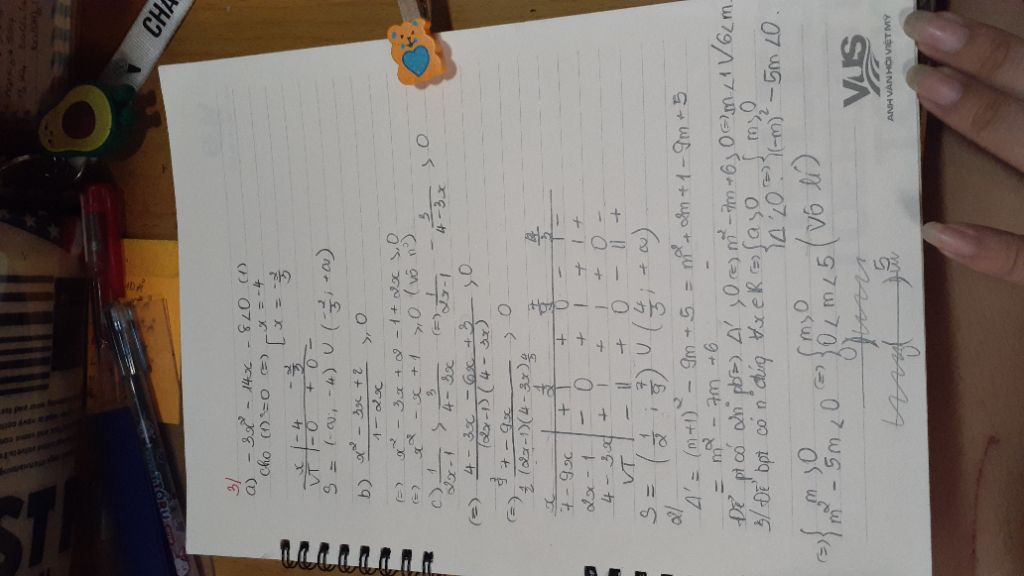 3/
a) -3x² - 14x - 8 < 0 (1)
Cho (1) = 0 (=) [ x = -4
[ x = -2/3
x | -4 -2/3
VT | - 0 + 0 -
S = (-∞, -4) ∪ (-2/3; +∞)
b) x² - 3x + 2 / 1 - 2x ≥ 0
(=) x² - 3x + 2 - 1 + 2x ≥ 0
(=) x² - x + 1 ≥ 0 (vô n⁰)
c) 1/2x-1 > 3/4-3x (=) 1/2x-1 - 3/4-3x > 0
(=) 4 - 3x - 6x + 3 / (2x-1)(4-3x) > 0
(=) 7 - 9x / (2x-1)(4-3x) > 0
x 1/2 7/9 4/3
7 - 9x + | + 0 - | -
2x - 1 - 0 + | + | +
4 - 3x + | + | + 0 -
VT - || + 0 - || +
S = (1/2; 7/9) ∪ (4/3; +∞)
2/
Δ' = (m+1)² - 9m + 5 = m² + 2m + 1 - 9m + 5
= m² - 7m + 6
Để pt có 2n⁰ pb (=) Δ' > 0 (=) m² - 7m + 6 > 0 (=) m < 1 V 6 < m.
3/ Để bpt có n⁰ đúng ∀x∈R (=) { a > 0 (=) { m > 0
{ Δ < 0. { (-m)² - 5m < 0.
(=) { m > 0 (=) { m > 0
{ m² - 5m < 0 { 0 < m < 5 (Vô lí)
VUS
ANH VĂN HỘI VIỆT MỸ